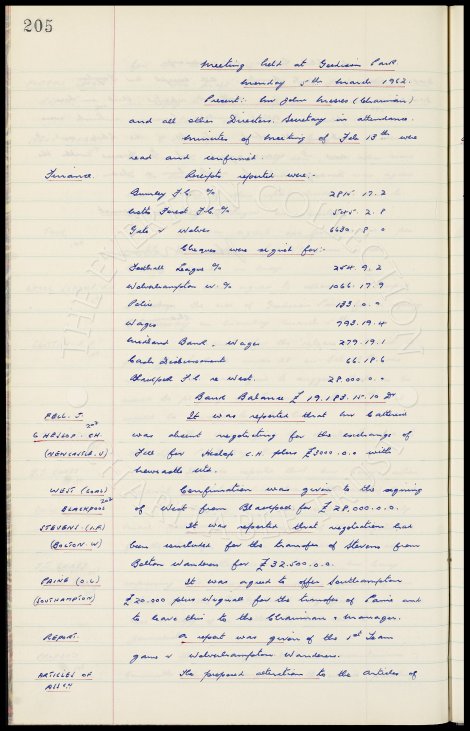 205
Meeting held at Goodison Park
Monday 5th March 1962.
Present:- Mr John Moores (Chairman)
and all other Directors. Secretary in attendance.
Minutes of Meeting of Feb 13th were
read and confirmed.
Finance. Receipts reported were:-
Burnley F.C. % 2815.17.2
Notts Forest F.C. % 545.2.8
Gate v Wolves 6630.8.0
Cheques were signed for:-
Football League % 254.9.2
Wolverhampton W. % 1066.17.9
Police 133.0.0
Wages 793.19.4
Midland Bank. Wages 279.19.1
Cash Disbursement 66.18.6
Blackpool F.C. re West. 28,000.0.0
Bank Balance £19,183.15.10 Dr
FELL. J. It was reported that Mr Catterick
G HESLOP. CH was absent negotiating for the exchange of
(NEWCASTLE. U) Fell for Heslop C.H plus £3000.0.0 with
Newcastle Utd.
WEST (GOAL) Confirmation was given to the signing
BLACKPOOL of West from Blackpool for £28,000.0.0.
STEVENS (I.F) It was reported that negotiations had
(BOLTON. W) been concluded for the transfer of Stevens from
Bolton Wanderers for £32.500.0.0.
PAINE (O.L) It was agreed to offer Southampton
(SOUTHAMPTON) £20.000 plus Wignall for the transfer of Paine and
to leave this to the Chairman & Manager.
REPORT. A report was given of the 1st Team
game v Wolverhampton Wanderers.
ARTICLES OF The proposed alteration to the Articles of
ASSCN
THE EVERTON COLLECTION